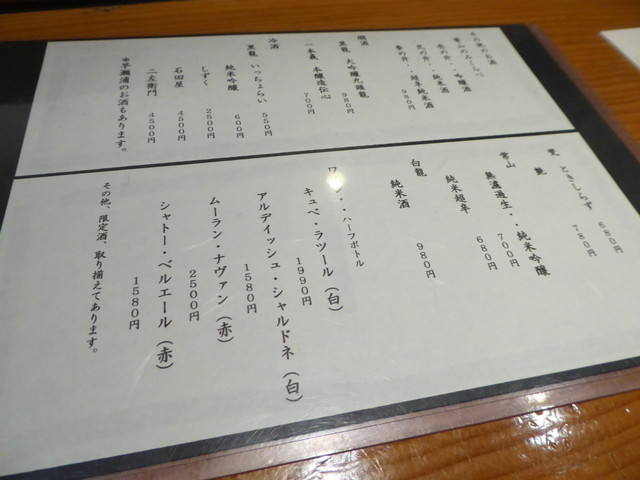 その他のお酒
常山のみくらべ
春の舟・・超辛純米酒
980円
燗酒
黒龍 大吟醸九頭龍
980円
一本義 本醸造伝心
700円
冷酒
黒龍 いっちょらい
550円
純米吟醸
600円
しずく
2500円
石田屋
4500円
二左衛門
4500円
＊早瀬浦のお酒もあります。
ときしらず
680円
艶
780円
常山
無濾過生・・純米吟醸
700円
純米超辛
680円
白龍
純米酒
980円
・・ハーフボトル
キュベ・ラツール（白）
1990円
アルディッシュ・シャルドネ（白）
1580円
ムーラン・ナヴァン（赤）
2500円
シャトー・ベルエール（赤）
1580円
その他、限定酒、取り揃えてあります。